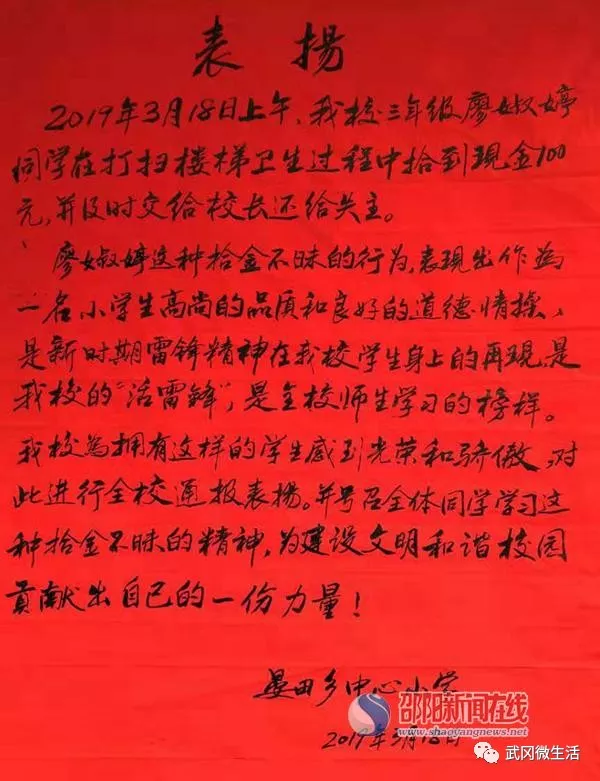 表揚
2019年3月18日上午，我校三年级廖婌婷
同学在打扫楼梯卫生过程中拾到现金100
元，并及时交给校长还给失主。
廖婌婷这种拾金不昧的行为，表现出作为
一名小学生高尚的品质和良好的道德情操，
是新时期雷锋精神在我校学生身上的再现，是
我校的“活雷锋”，是全校师生学习的榜样。
我校為拥有这样的学生感到光荣和骄傲，对
此进行全校通报表揚。并号召全体同学学习这
种拾金不昧的精神，为建设文明和谐校园
貢献出自己的一份力量！
晏田乡中心小学
邵阳新闻在线
www.shaoyangnews.net
2019年3月18日
武冈微生活